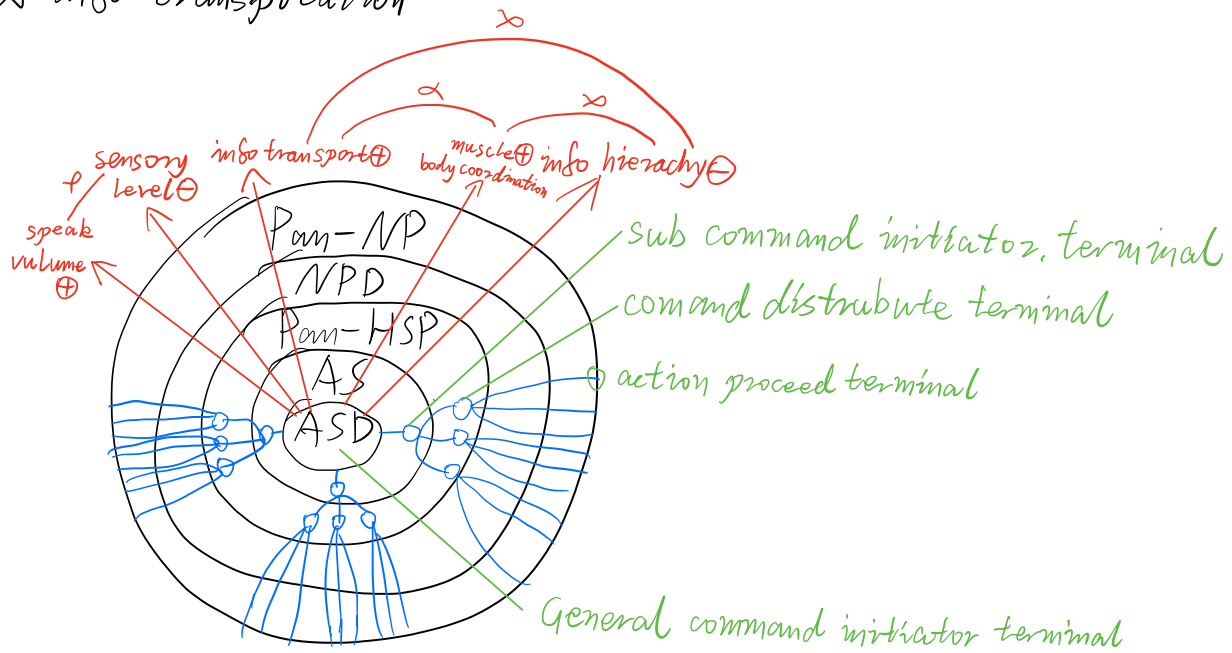 info transportation
∝
∝
∝
sensory
level⊖
info transport⊕
muscle⊕
body coordination
info hierachy⊖
speak
vulume
⊕
Pan-NP
NPD
Pan-HSP
AS
ASD
sub command initiator. terminal
comand distrubute terminal
action proceed terminal
General command initiator terminal